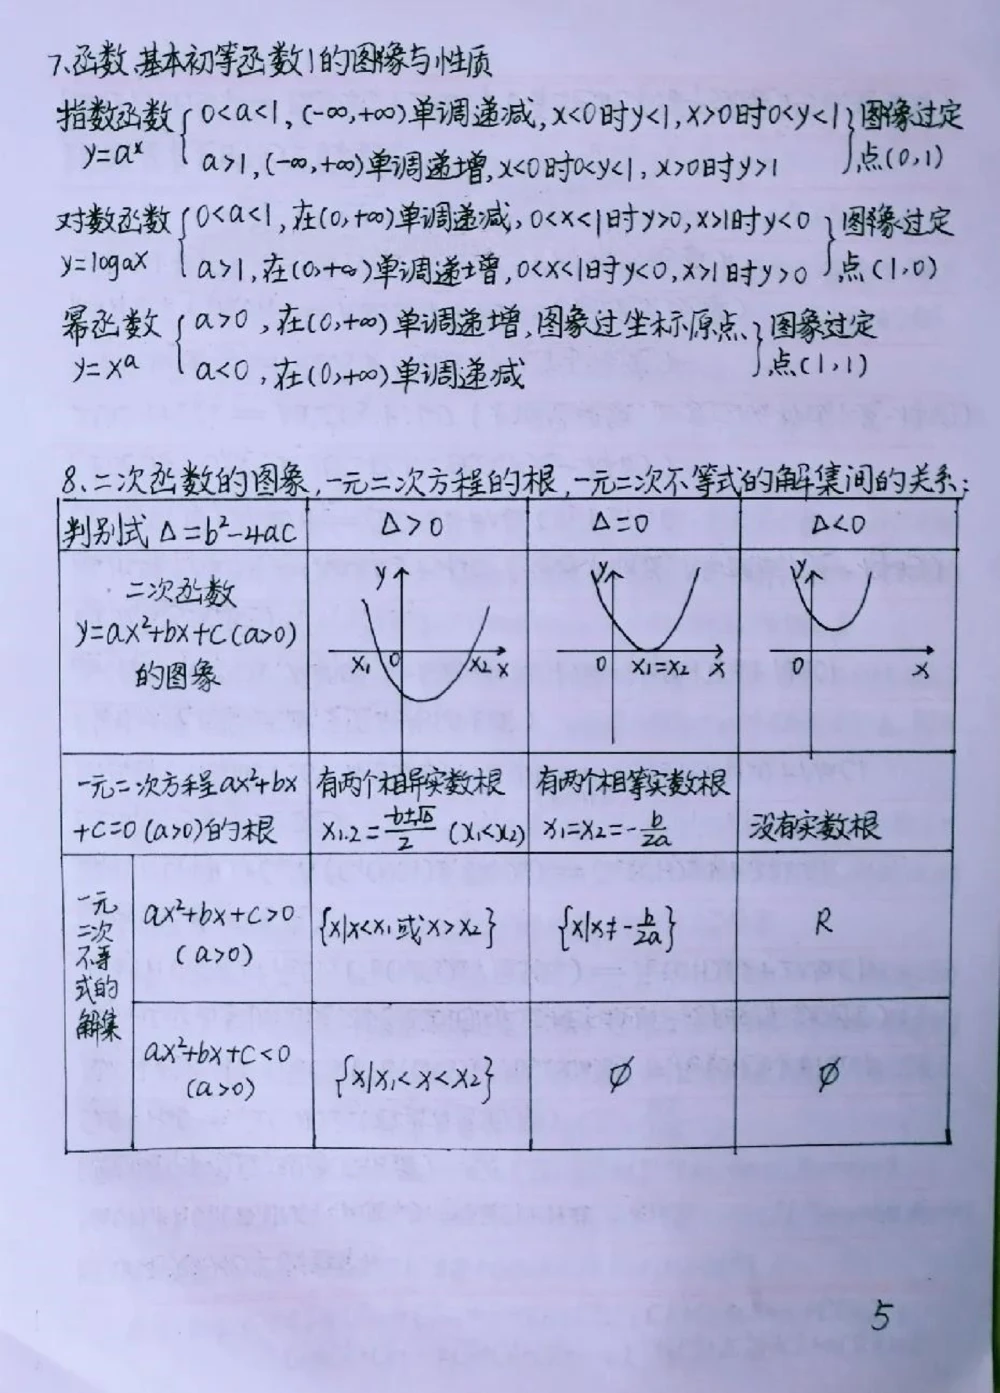 7、函数、基本初等函数1的图像与性质
指数函数 0<a<1, (-∞,+∞)单调递减, x<0时y<1, x>0时0<y<1 图象过定
y=aˣ a>1, (-∞,+∞)单调递增, x<0时0<y<1, x>0时y>1 点(0,1)
对数函数 0<a<1, 在(0,+∞)单调递减, 0<x<1时y>0, x>1时y<0 图象过定
y=logax a>1, 在(0,+∞)单调递增, 0<x<1时y<0, x>1时y>0 点(1,0)
幂函数 a>0, 在(0,+∞)单调递增, 图象过坐标原点 图象过定
y=xᵃ a<0, 在(0,+∞)单调递减 点(1,1)
8、二次函数的图象,一元二次方程的根,一元二次不等式的解集间的关系:
判别式 Δ=b²-4ac Δ>0 Δ=0 Δ<0
二次函数
y=ax²+bx+c(a>0)
的图象
y
x₁ 0 x₂
y
0 x₁=x₂ x
y
0 x
一元二次方程ax²+bx
+c=0(a>0)的根
有两个相异实数根
x₁.₂=b±√Δ/2 (x₁<x₂)
有两个相等实数根
x₁=x₂=-b/2a
没有实数根
一元
二次
不等
式的
解集
ax²+bx+c>0
(a>0)
{x|x<x₁或x>x₂}
{x|x≠-b/2a}
R
ax²+bx+c<0
(a>0)
{x|x₁<x<x₂}
∅
∅
5